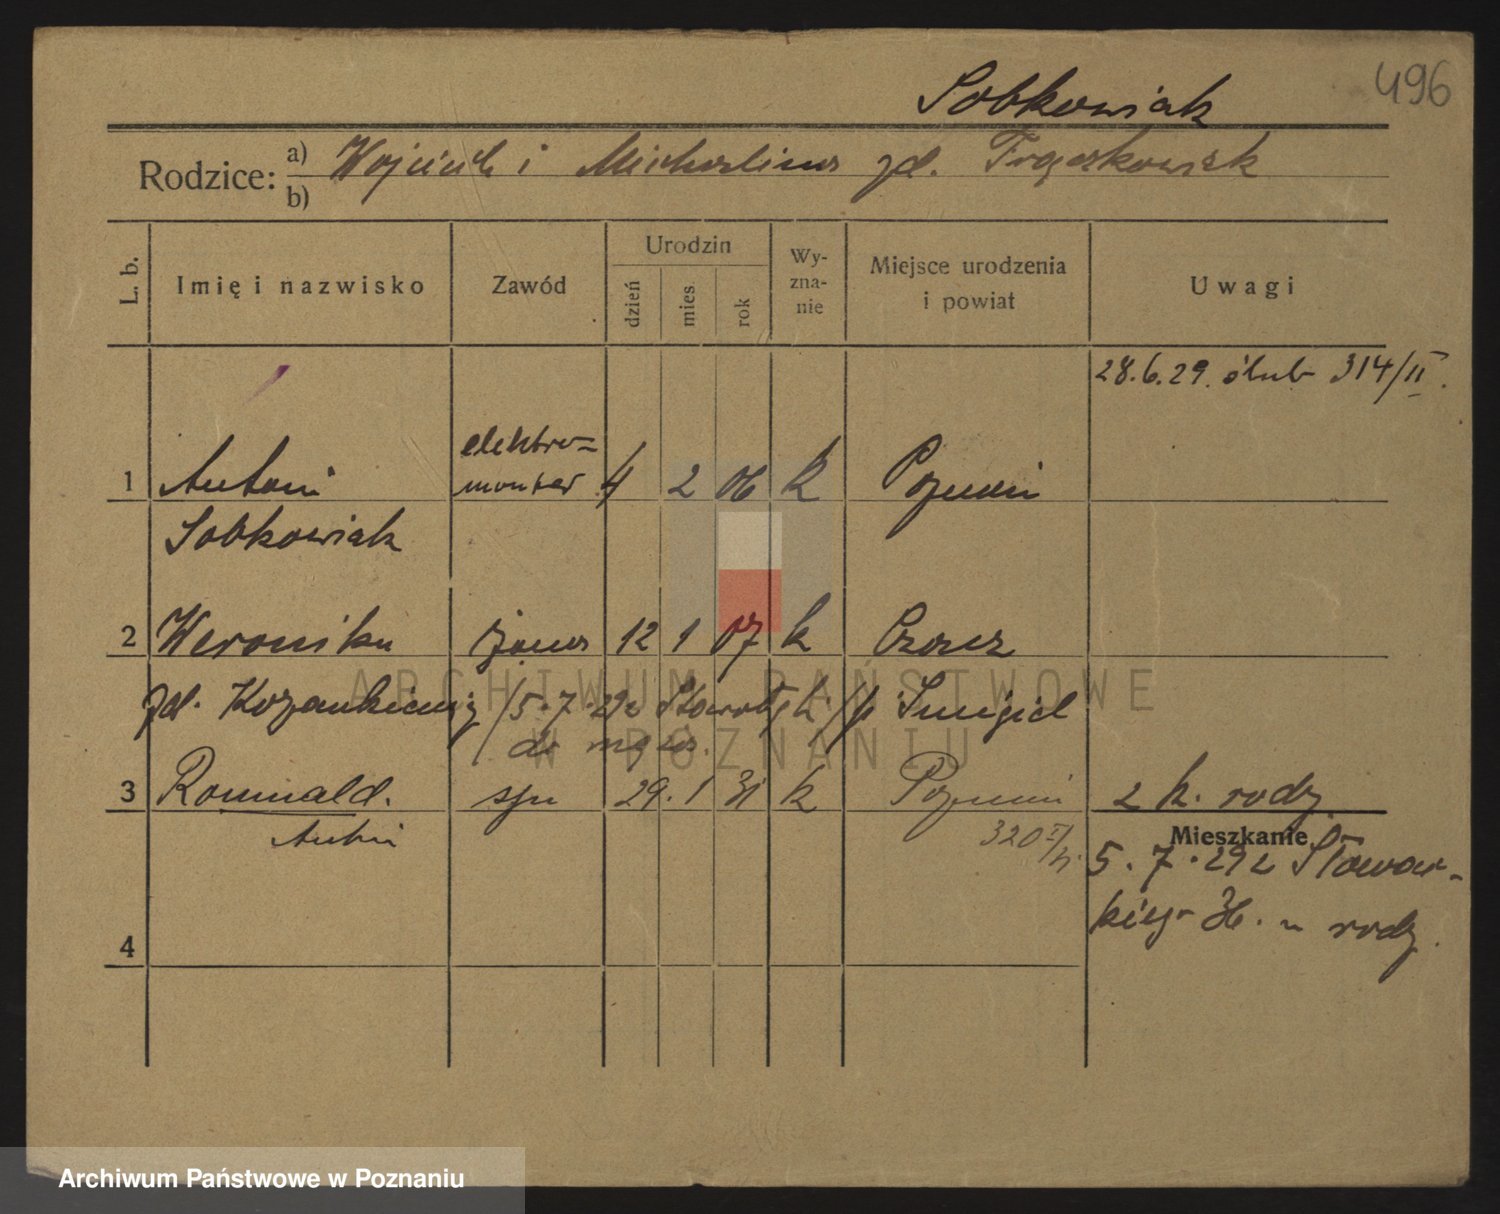 496
Sobkowiak
Rodzice: a) Wojciech i Michalina zd. Frąckowiak
b)
L. b. Imię i nazwisko Zawód Urodzin dzień mies. rok Wy-zna-nie Miejsce urodzenia i powiat Uwagi
28.6.29. ślub 314/II.
elektro=
1 Antoni monter 4 2 06 k Poznań
Sobkowiak
2 Weronika żona 12 1 07 k
zd. /5.7.29 z k/ p. Śmigiel
do męża.
3 Romuald. syn 29. 1 31 k Poznań 2 k. rodz
Antoni 320 Mieszkanie
5.7.29 z Słowac-
kiego 36. u rodz.
4
ARCHIWUM PAŃSTWOWE
W POZNANIU
Archiwum Państwowe w Poznaniu